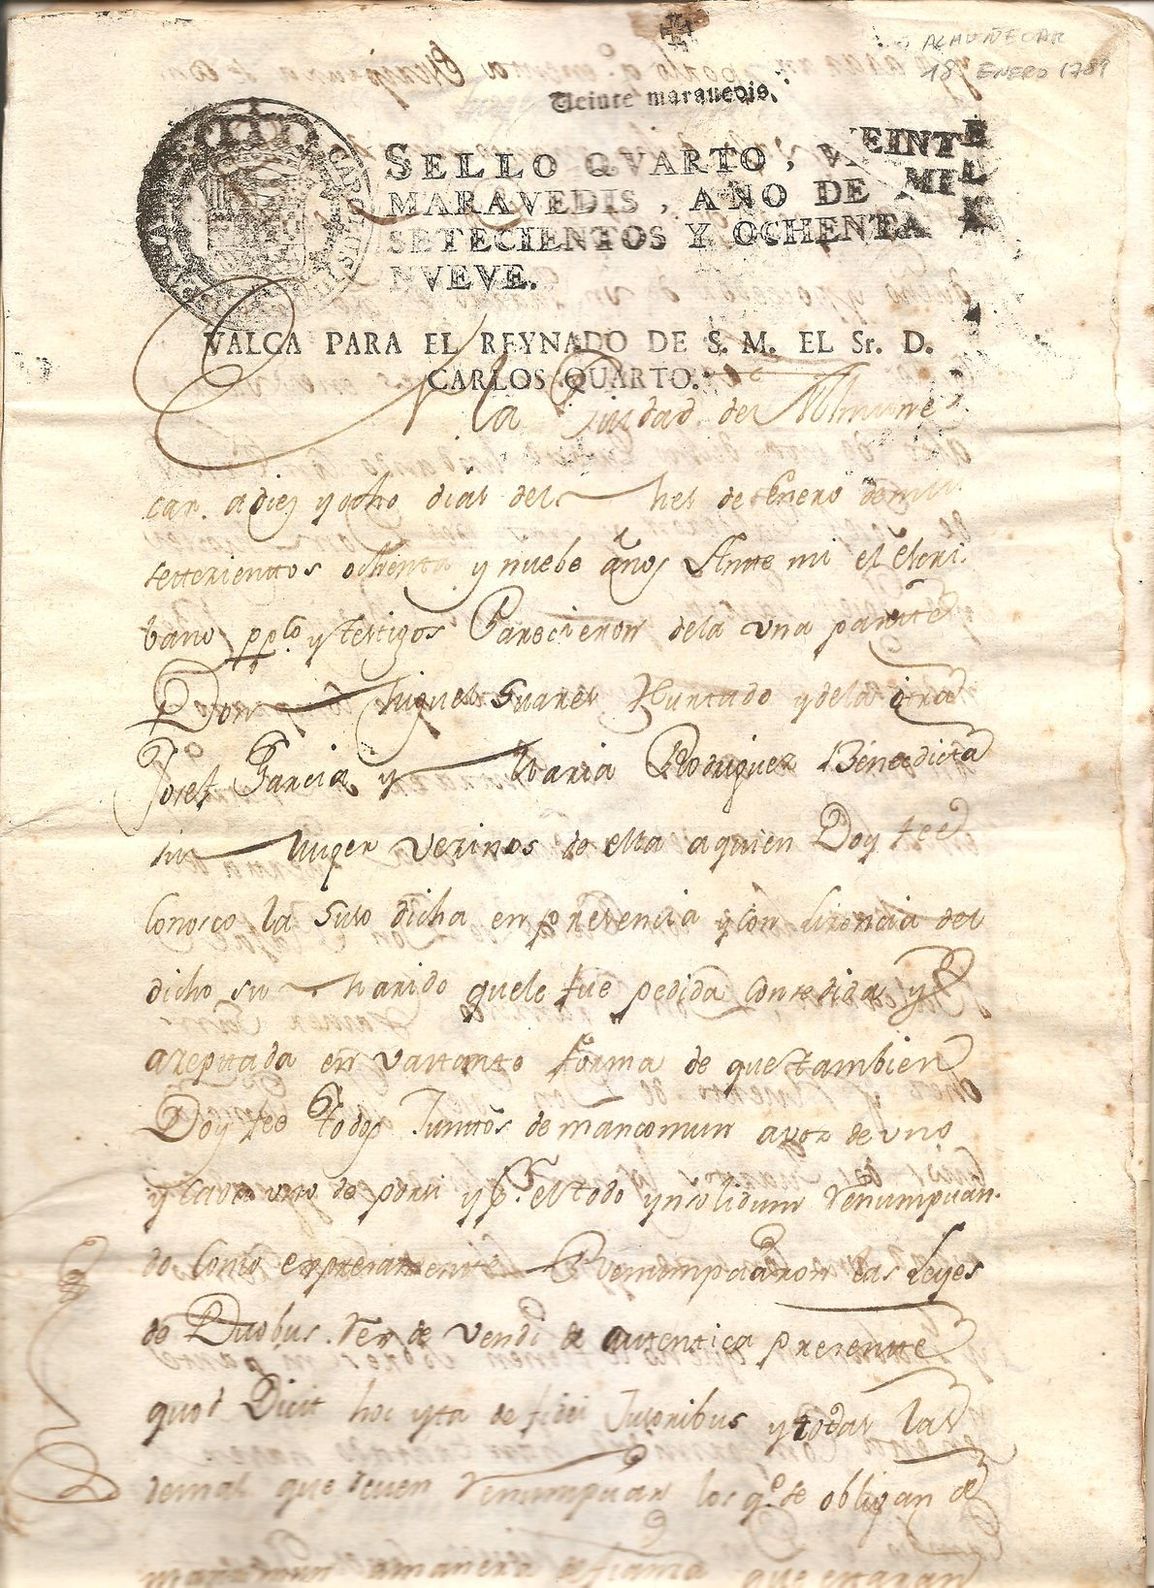 ALMUÑECAR
18 ENERO 1789
Veinte maravedis.
SELLO QVARTO, VEINTE
MARAVEDIS, AÑO DE MIL
SETECIENTOS Y OCHENTA
NVEVE.
VALGA PARA EL REYNADO DE S. M. EL Sr. D.
CARLOS QUARTO.
la Ciudad de Almuñe
car. a diez y ocho dias del mes de Enero de mil
settecienttos ochenta y nuebe años Antte mi el escri
bano ppco. y testigos Parecieron dela una partte
Don Miguel Suares Hurtado y dela otra
Josef Garcia y Maria Rodriguez Benedicta
su Muger vecinos de esta a quien Doy fee
Conosco la Suso dicha en presencia y con licencia del
dicho su Marido quele fue pedida Consedida y
azeptada en vastante forma de que tambien
Doy fee todos Junttos de mancomun a voz de uno
y cada uno de por si y pr. el todo ynsolidum renumpuan
do Como expresamente Renumpuaron las Leyes
de Duobus rex de vendi el autentica presentte
quod Dicit hoc yta de fidei Jusoribus y todas las
demas que deven renumpuar los qe. se obligan de
mancomun a manera de fianza que estaran